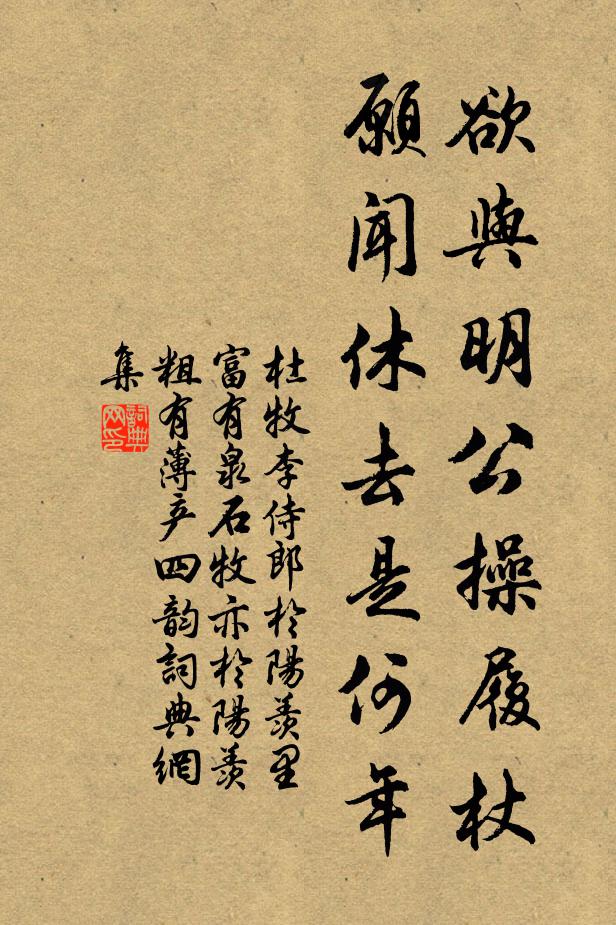 欲與明公操履杖
願聞休去是何年
杜牧李侍郎於陽羨里
富有泉石牧亦於陽羨
粗有薄产四韵詞典網
集
詞典
网印